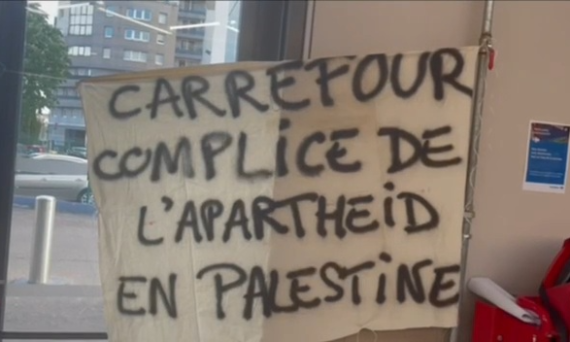 CARREFOUR
COMPLICE DE
L'APARTHEID
EN PALESTINE